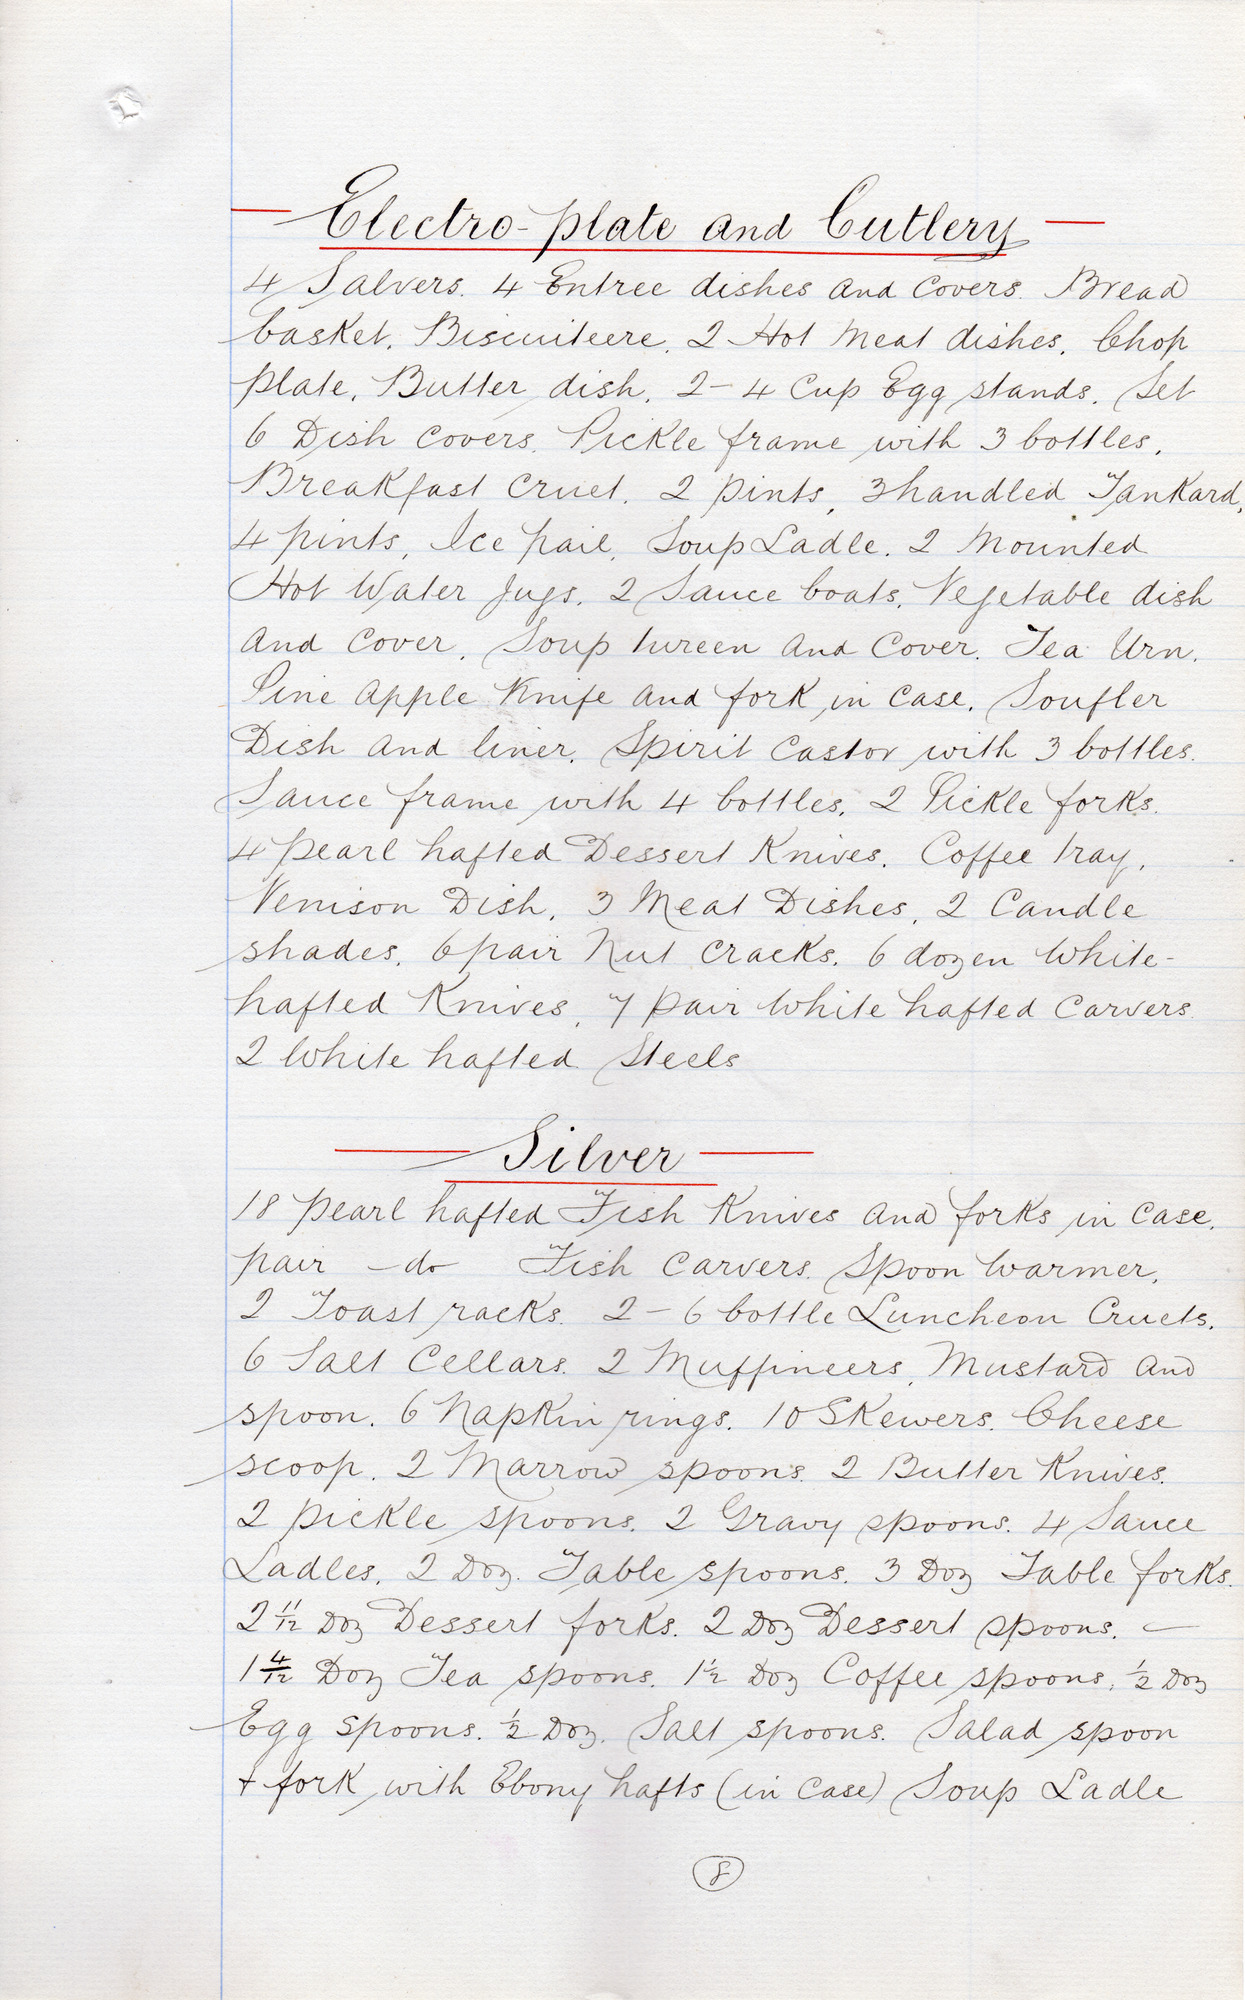 Electro-plate and Cutlery
4 Salvers. 4 Entree dishes and covers. Bread
basket. Biscuiteere. 2 Hot Meat dishes. Chop
plate. Butter dish. 2-4 Cup Egg stands. Set
6 Dish covers. Pickle frame with 3 bottles.
Breakfast cruet. 2 pints, 3 handled Tankard,
4 pints, Ice pail, Soup Ladle. 2 Mounted
Hot Water Jugs. 2 Sauce boats. Vegetable dish
and cover. Soup tureen and cover. Tea Urn.
Pine apple Knife and fork in case. Soufler
Dish and liner. Spirit castor with 3 bottles.
Sauce frame with 4 bottles. 2 Pickle forks.
4 pearl hafted Dessert Knives. Coffee tray.
Venison Dish. 3 Meat Dishes, 2 Candle
shades. 6 pair Nut cracks. 6 dozen White-
hafted Knives, 7 pair White hafted Carvers.
2 White hafted Steels
Silver
18 pearl hafted Fish Knives and forks in case.
pair - do Fish Carvers. Spoon Warmer.
2 Toast racks. 2-6 bottle Luncheon Cruets.
6 Salt Cellars. 2 Muffineers, Mustard and
spoon. 6 Napkin rings. 10 Skewers. Cheese
scoop. 2 Marrow spoons. 2 Butter Knives.
2 pickle spoons. 2 Gravy spoons. 4 Sauce
Ladles. 2 Doz. Table spoons. 3 Doz Table forks.
2 11/12 Doz Dessert forks. 2 Doz Dessert spoons. -
1 4/12 Doz Tea spoons. 1½ Doz Coffee spoons. ½ Doz
Egg spoons. ½ Doz. Salt spoons. Salad spoon
+ fork with Ebony hafts (in case) Soup Ladle
8